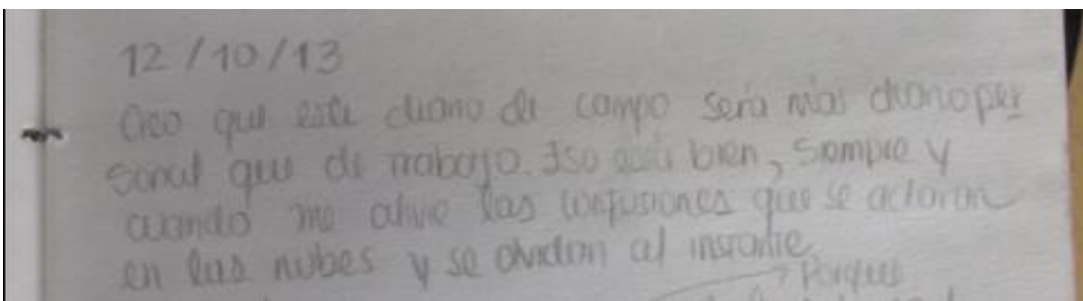 12/10/13
Creo que este diario de campo sería más diario per
sonal que de trabajo. Eso está bien, siempre y
cuando me alivie las confusiones que se aclaran
en las nubes y se olvidan al instante
Porque